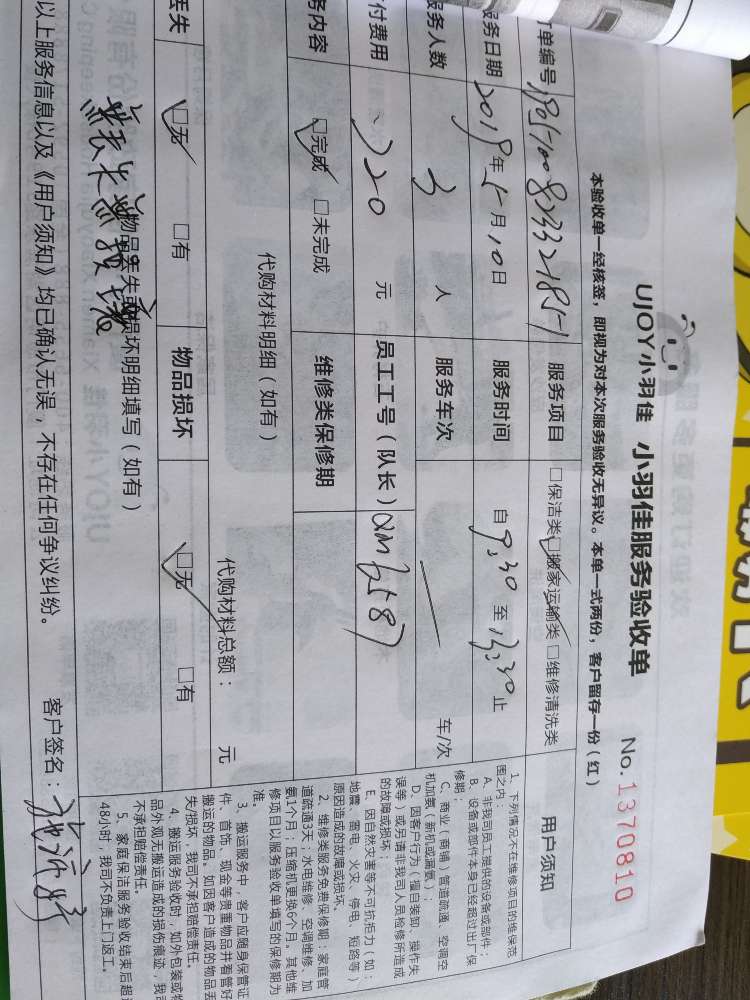 UJOY小羽佳 小羽佳服务验收单
No.1370810
本验收单一经核签，即视为对本次服务验收无异议。本单一式两份，客户留存一份（红）
订单编号
服务项目 □保洁类 □搬家运输类 □维修清洗类
服务日期 2019年5月10日 服务时间 自9:30至13:30止
服务人数 3人 服务车次 车/次
付费用 220元 员工工号（队长）
务内容 □完成 □未完成 维修类保修期
代购材料明细（如有）
代购材料总额： 元
丢失 □无 □有 物品损坏 □无 □有
物品丢失或损坏明细填写（如有）
以上服务信息以及《用户须知》均已确认无误，不存在任何争议纠纷。 客户签名：
用户须知
1、下列情况不在维修项目的维保范
围之内：
A、非我司员工提供的设备或部件；
B、设备或部件本身已经超过出厂保
修期；
C、商业（商铺）管道疏通、空调空
机加氨（新机或漏氨）；
D、因客户行为（擅自装卸、操作失
误等）或另请非我司人员检修所造成
的故障或损坏；
E、因自然灾害等不可抗拒力（如：
地震、雷电、火灾、停电、短路等）
原因造成的故障或损坏。
2、维修类服务免费保修期：家庭管
道疏通3天；水电维修、空调维修、加
氨1个月；压缩机更换6个月。其他维
修项目以服务验收单填写的保修期为
准。
3、搬运服务中，客户应随身保管证
件、首饰、现金等贵重物品并看管好
搬运的物品。如因客户造成的物品丢
失/损坏，我司不承担赔偿责任。
4、搬运服务验收时，如外包装或物
品外观无搬运造成的损伤痕迹，我司
不承担赔偿责任。
5、家庭保洁服务验收结束后超过
48小时，我司不负责上门返工。